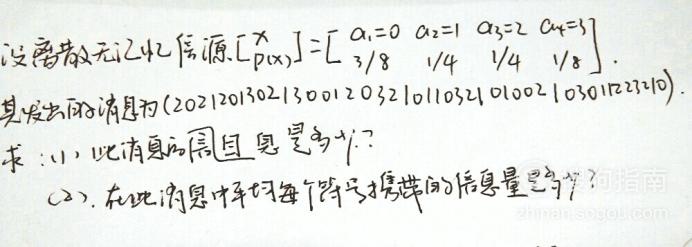 设离散无记忆信源[X P(x)]=[a₁=0 a₂=1 a₃=2 a₄=3
3/8 1/4 1/4 1/8].
其发出的消息为(20212013021300120321011032101002103011223210).
求:(1)此消息的自信息是多少?
(2).在此消息中平均每个符号携带的信息量是多少?
搜狗指南
zhinan.sogou.com